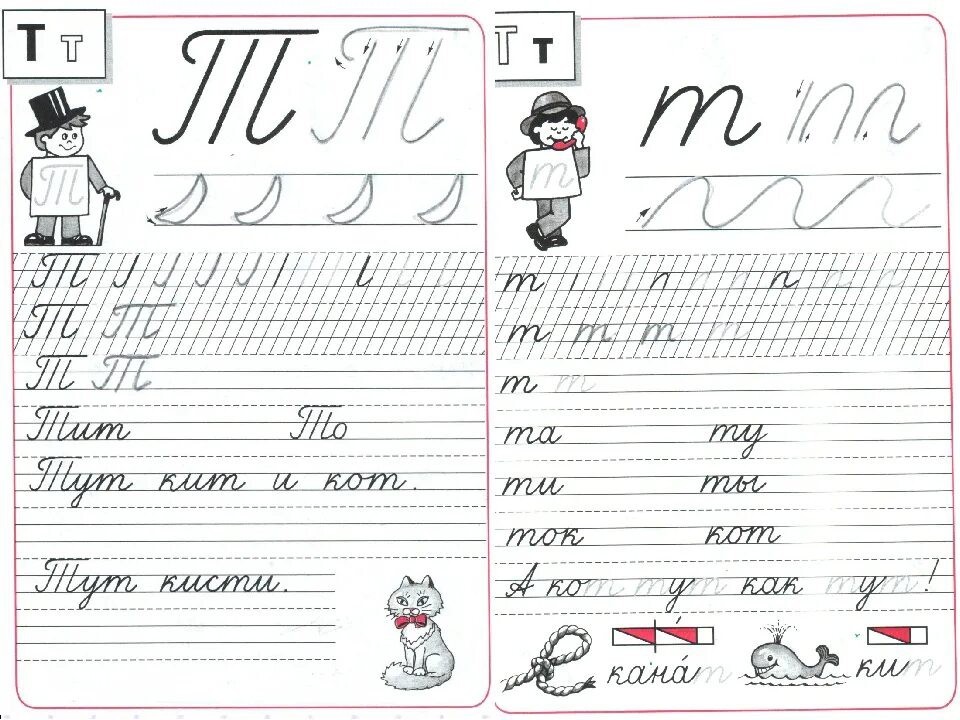 Т т
Т Т
Т
Т
Т Т
Т Т
Тит То
Тут кит и кот.
Тут кисти.
Т т
т т
т
т
т т т т
т т
та ту
ти ты
ток кот
А кот тут как тут!
кана́т кит